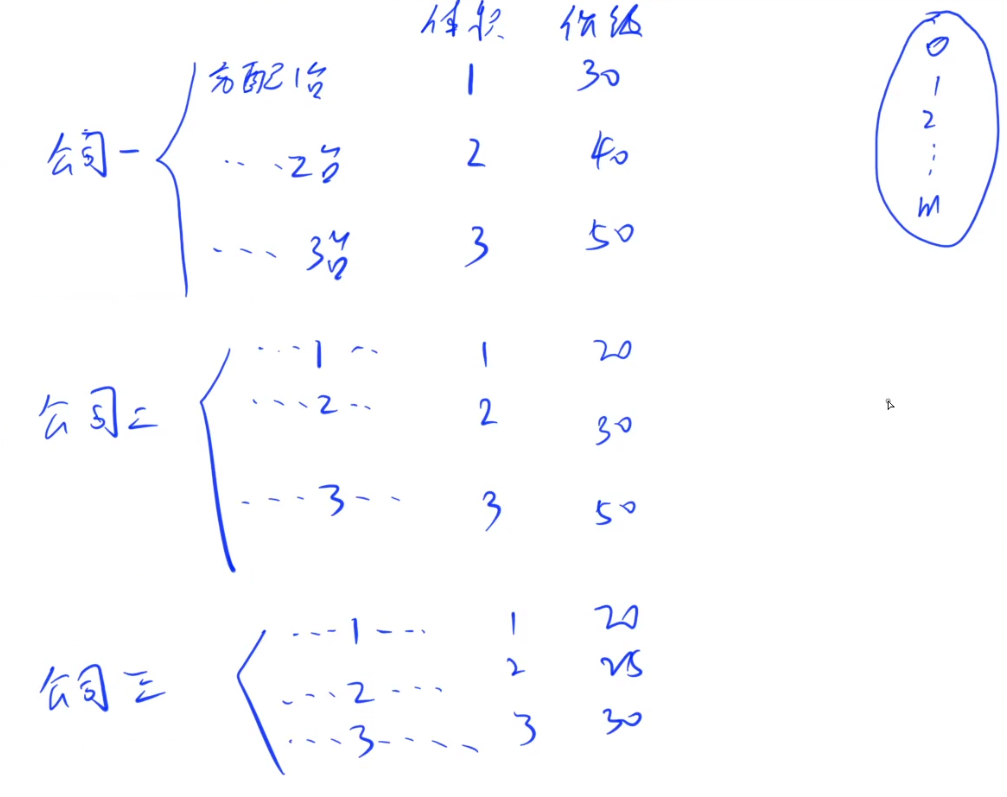 体积 价值
公司一 分配1台 1 30
... 2台 2 40
... 3台 3 50
公司二 ...1... 1 20
...2... 2 30
...3... 3 50
公司三 ...1... 1 20
...2... 2 25
...3... 3 30
0
1
2
⋮
m